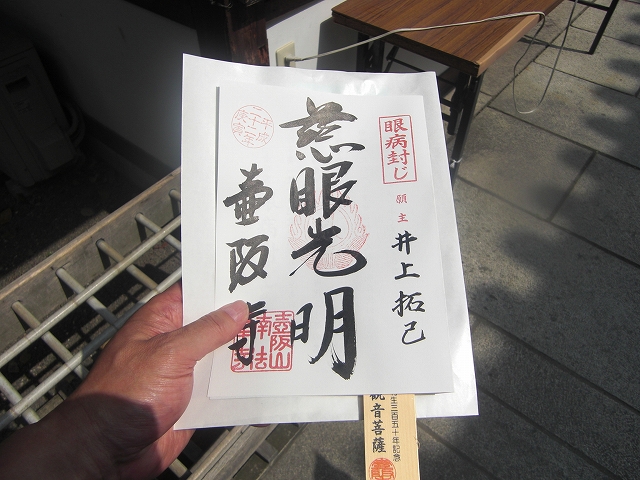 眼病封じ
願主
井上拓己
慈眼光明
壷阪寺
壺阪山
南法
三百五十年記念
観音菩薩